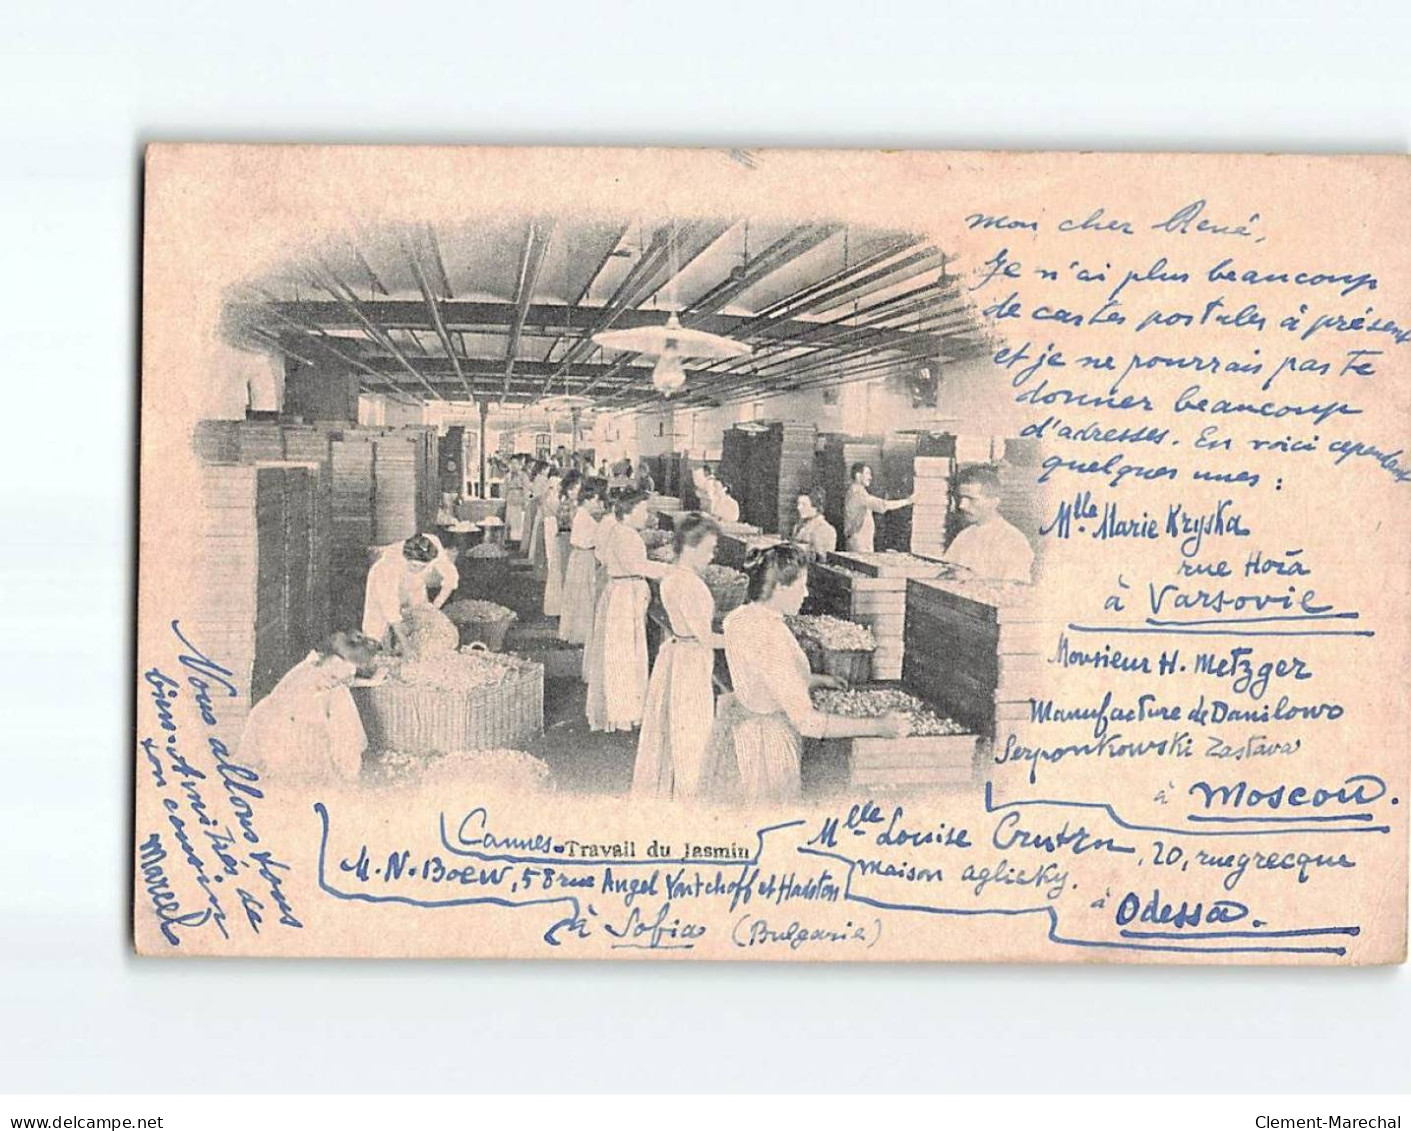 mon cher René,
Je n'ai plus beaucoup
de cartes postales à présent
et je ne pourrais pas te
donner beaucoup
d'adresses. En voici cependant
quelques unes :
Mlle Marie Kryska
rue Hoża
à Varsovie
Monsieur H. Metzger
Manufacture de Danilowo
Serponkowski Zastava
à Moscou.
Mlle Louise
maison
, 20, rue grecque
à Odessa.
Cannes - Travail du Jasmin
M. N. Boew, 58 rue Angel
à Sofia (Bulgarie)
Nous allons tous
bien. Amitiés de
ton cousin
Marcel
www.delcampe.net
Clement-Marechal